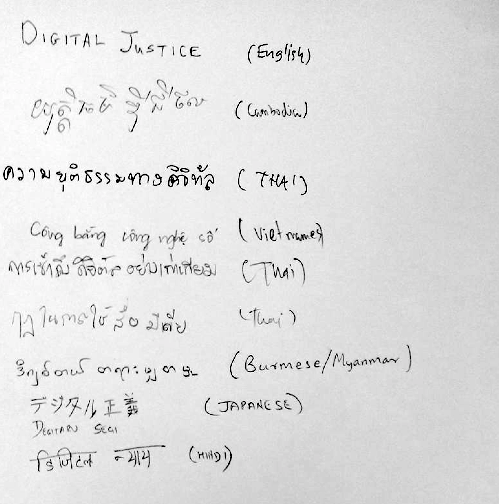 DIGITAL JUSTICE (English)
(Cambodia)
ความยุติธรรมทางดิจิทัล (THAI)
Công bằng công nghệ số (Vietnames)
การเข้าถึงดิจิตัลอย่างเท่าเทียม (Thai)
กฎในการใช้สื่อมีเดีย (Thai)
ဒီဂျစ်တယ် တရားမျှတမှု (Burmese/Myanmar)
デジタル正義 (JAPANESE)
DEGITARU SEGI
डिजिटल न्याय (HINDI)